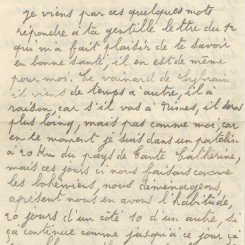 je viens par ces quelques mots
répondre à ta gentille lettre du 12
qui m'a fait plaisir de te savoir
en bonne santé, il en est de même
pour moi. Le veinard de Sylvain
il vient de temps à autre, il a
raison, car s'il vas à Nimes, il sera
plus loing, mais pas comme moi, car
en ce moment je suis dans un patelin
à 20 Km du pays de Tante Catherine,
mais ces jours ci nous faisons comme
les bohémiens, nous déménageons,
apresent nous en avons l'habitude,
20 jours d'un côté 10 d'un autre, se
ça continue comme jusqu'à ce jour ça